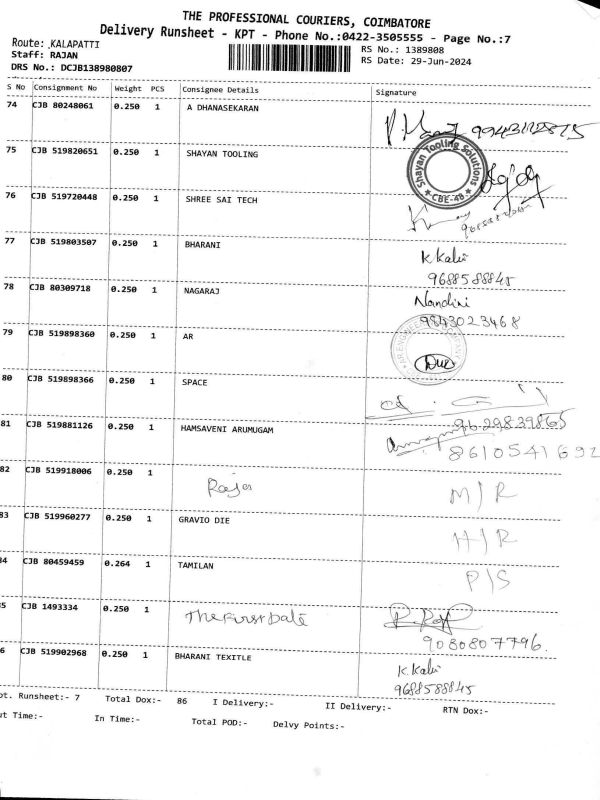 THE PROFESSIONAL COURIERS, COIMBATORE
Delivery Runsheet - KPT - Phone No.:0422-3505555 - Page No.:7
Route: KALAPATTI
RS No.: 1389808
Staff: RAJAN
RS Date: 29-Jun-2024
DRS No.: DCJB138980807
S No Consignment No Weight PCS Consignee Details Signature
74 CJB 80248061 0.250 1 A DHANASEKARAN
75 CJB 519820651 0.250 1 SHAYAN TOOLING
Shayan Tooling Solutions
CBE-48
76 CJB 519720448 0.250 1 SHREE SAI TECH
77 CJB 519803507 0.250 1 BHARANI K Kalai
9688588845
78 CJB 80309718 0.250 1 NAGARAJ Nandini
9843023468
79 CJB 519898360 0.250 1 AR
80 CJB 519898366 0.250 1 SPACE
9629839865
81 CJB 519881126 0.250 1 HAMSAVENI ARUMUGAM
8610541692
82 CJB 519918006 0.250 1 M/R
83 CJB 519960277 0.250 1 GRAVIO DIE H/R
84 CJB 80459459 0.264 1 TAMILAN P/S
5 CJB 1493334 0.250 1 The First Date
9080807796.
6 CJB 519902968 0.250 1 BHARANI TEXITLE K.Kalai
9688588845
pt. Runsheet:- 7 Total Dox:- 86 I Delivery:- II Delivery:- RTN Dox:-
ut Time:- In Time:- Total POD:- Delvy Points:-